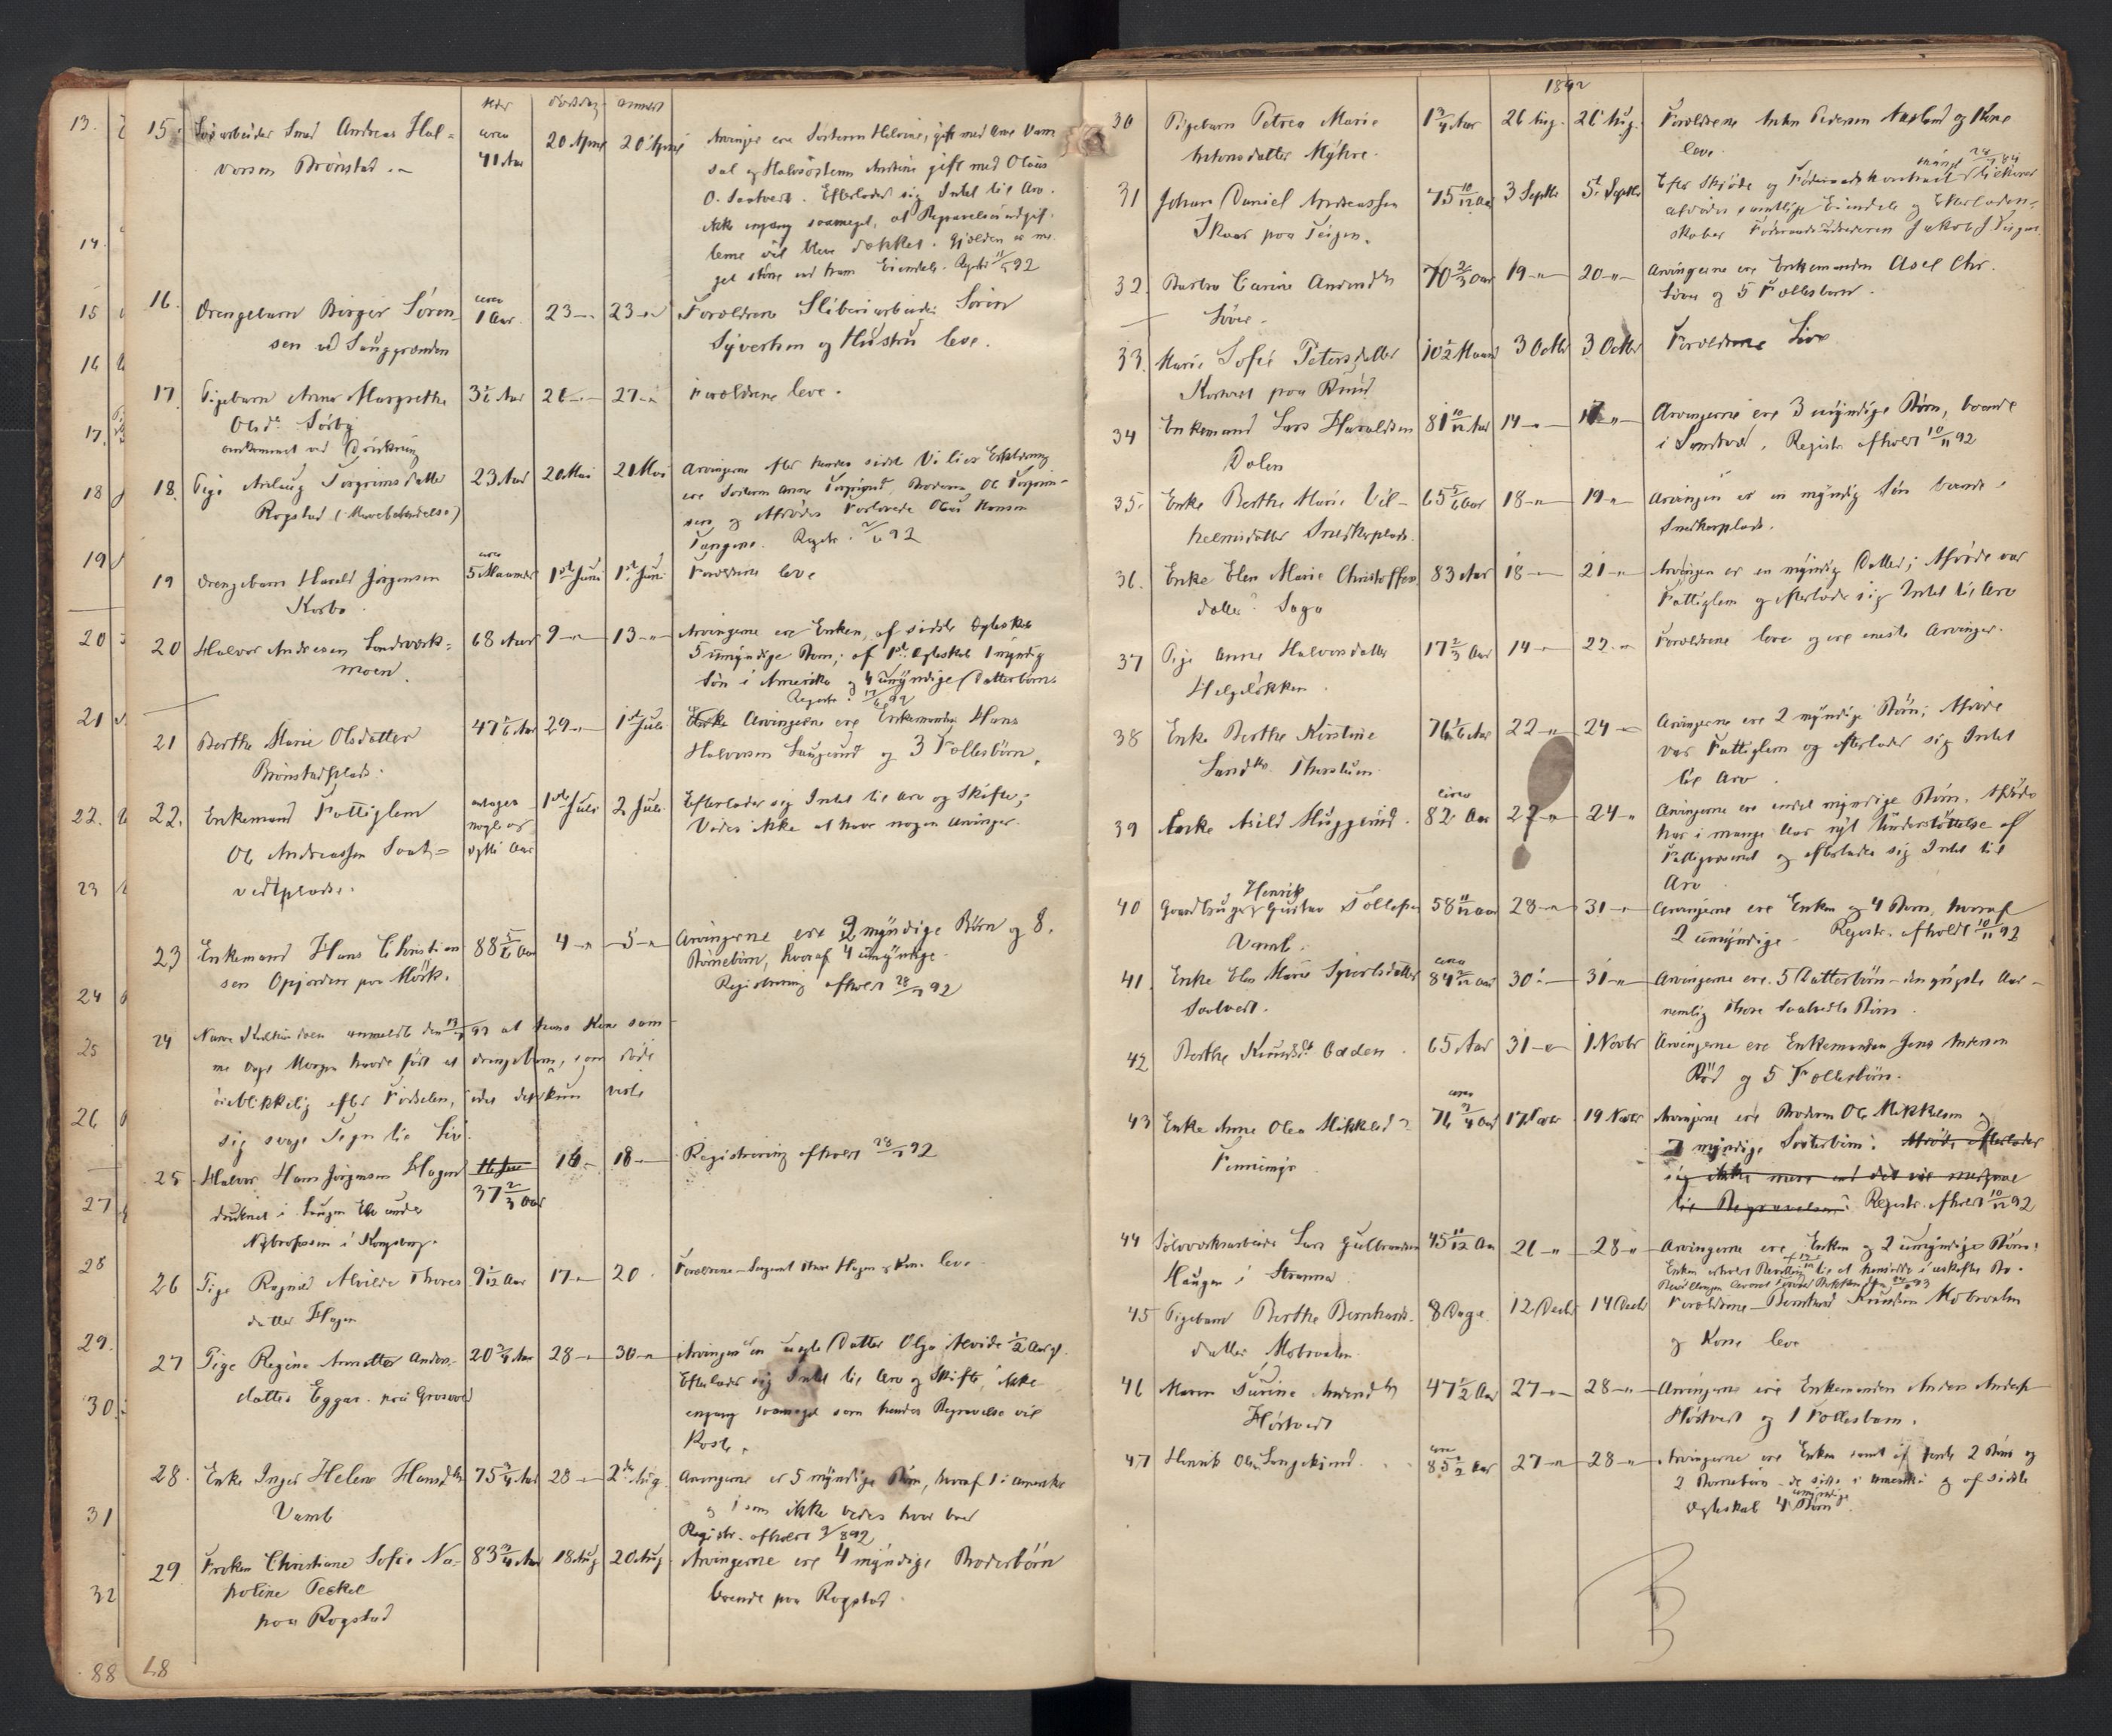 Alder Dødsdag anmeldt
15. Andreas Hal=
vorsen Brønstad
circa
41 Aar
20 April 20 April
Arvinger ere Søsteren Helene, gift med Arne Vam
og Halvsøsteren Andrine gift med Olaus
O. Saatvedt. Efterlader sig Intet til Arv.
ikke engang saameget, at Begravelsesudgif-
terne vil blive dækket. Gjælden er me-
get større end hans Eiendele.
16. Drengebarn Birger Søren-
sen
circa
1 Aar
23 — 23 —
Forældrene Sliberiarbeider Søren
Syvertsen og Hustru leve.
17. Pigebarn Anna Margrethe
Olsdr Sørby
omkommet ved Drukning
27 —
Forældrene leve.
18. Pige Aslaug Torgrimsdatter
Rogstad
23 Aar 20 Mai 21 Mai
Arvingerne efter hendes sidste Villies Erklæring
ere Søsteren Anne
og Afdødes Forlovede Olaus Hansen
Tangene.
19 Drengebarn Harald Jørgensen
Korbo
circa
5 Maaneder 1ste Juni 1ste Juni
Forældrene leve
20 Halvor Andresen Landsværk=
moen
68 Aar 9 — 13 —
Arvingerne ere Enken, af sidste Egteskab
5 umyndige Børn; af 1ste Egteskab 1 myndig
Søn i Amerika og 4 umyndige Datterbørn.
21 Berthe Marie Olsdatter
Brønstadplads.
29 — 1ste Juli
Arvingerne ere Enkemanden Hans
Halvorsen Laugerud og 3 Fællesbørn.
22. Enkemand Fattiglem
Ole Andreassen Saat=
vedtplads.
antagen
nogle og
otti Aar
1ste Juli 2 Juli
Efterlader sig Intet til Arv og Skifte;
Vides ikke at have nogen Arvinger.
23 Enkemand Hans Christian
sen Opjorden paa Mørk.
88 5/6 Aar 4 — 5 —
Arvingerne ere 2 myndige Børn og 8.
Børnebørn, hvoraf 4 umyndige.
Registrering afholdt 28/7 92
24 anmeldt den at hans Kone sam
me Dags Morgen havde født et drengebarn, som døde
øieblikkelig efter Fødselen, idet det kun viste
sig svage Tegn til Liv.
25 Halvor Hans Jørgensen Hagen
druknet i Laagen Elv under
Nybrofossen i Kongsberg.
37 2/3 Aar
16 — 18 —
Registrering afholdt 28/7 92
26 Pige Ragna Alvilde Thores
datter Hagen
9 1/12 Aar 17 — 20
Forældrene – Sergeant Thore Hagen og Kone leve
27 Pige Regine Annette Anders-
datter Eggar. paa Grosvold
20 3/4 Aar 28 — 30 —
Arvingen en uægte Datter Olga Alvide 1/2 Aar gl.
Efterlader sig Intet til Arv og Skifte, ikke
engang saameget som hendes Begravelse vil
Koste.
28. Enke Inger Helene Hansdtr
Vamb
75 3/4 Aar 28 — 2den Aug.
Arvingerne er 5 myndige Børn, hvoraf 1 i Amerika
og 1 som ikke vides hvor boer
Registr. afholdt 9/8 92
29 Frøken Christiane Sofie Na-
poline Teckel
paa Rogstad
83 3/4 Aar 18 Aug 20 Aug
Arvingerne ere 4 myndige Broderbørn
boende paa Rogstad.
88 48
1892
30 Pigebarn Petrea Marie
Antonsdatter Myhre.
1 3/4 Aar 26 Aug. 26 Aug.
Forældrene Anton Pedersen og Kone
leve.
31 Johan Daniel Andreassen
Skaar paa Teigen.
75 10/12 Aar 3 Septbr 5te Septbr
Efter Skjøde og Føderaadskontrakt tilhører
afdødes samtlige Eiendele og Efterladen-
skaber Føderaadsudrederen Jakob J Teigen.
32. Barbro Carine Amundsdtr
Søvre.
70 2/3 Aar 19 — 20 —
Arvingerne ere Enkemanden Axel Chr.
Søvre og 5 Fællesbørn.
33. Marie Sofie Petersdatter
10 1/2 Maaned 3 Octbr 3 Octbr
Forældrene Leve
34 Enkemand Lars Haraldsen
Dalen
81 10/12 Aar 14 — 17 —
Arvingerne ere 3 myndige Børn, boende
i Sandsvær. Registr. afholdt 10/11 92
35. Enke Berthe Marie Vil-
helmsdatter Snedkerplads.
65 5/6 Aar 18 — 19 —
Arvingen er en myndig Søn boende
Snedkerplads.
36. Enke Elen Marie Christoffers
datter Saga
83 Aar 18 — 21 —
Arvingen er en myndig Datter; Afdøde var
Fattiglem og efterlader sig Intet til Arv
37 Pige Anne Halvorsdatter
Helgeløkken.
17 2/3 Aar 14 — 22 —
Forældrene leve og ere eneste Arvinger.
38 Enke Berthe Kirstine
22 — 24 —
Arvingerne ere 2 myndige Børn; Afdøde
var Fattiglem og efterlader sig Intet
til Arv.
39 Enke Muggerud.
circa
82 Aar 22 — 24 —
Arvingerne ere endel myndige Børn. Afdøde
har i mange Aar nydt Understøttelse af
Fattigvæsenet og efterlader sig Intet til
Arv
40 Gaardbruger Henrik Gustav Tollefsen
Vamb.
58 11/12 Aar 28 — 31 —
Arvingerne ere Enken og 4 Børn, hvoraf
2 umyndige. Registr. afholdt 10/11 92
41. Enke Elen Marie Syvertsdatter
Saatvedt.
circa
84 Aar 30 — 31 —
Arvingerne ere 5 Datterbørn
nemlig Thore Saatvedts Børn.
42 Berthe Knudsdt Odden.
65 Aar 31 — 1 Novbr
Arvingerne ere Enkemanden Jens Andersen
Rød og 5 Fællesbørn.
43 Enke Anne Olea Mikkelsdr
circa
76 3/4 Aar 17 Novbr. 19 Novbr
Arvingerne ere Broderen Ole Mikkelsen og
7 myndige Søsterbørn. Afdøde efterlader
sig ikke mere end det vil medgaae
til Begravelsen. Registr. afholdt 10/12 92
44 Sølvværksarbeider Lars Gulbrandsen
Haugen i Strømna
45 11/12 Aar 26 — 28 —
Arvingerne ere Enken og 2 umyndige Børn;
Enken erholdt Bevilling til at hensidde i uskiftet Bo.
45 Pigebarn Berthe Bernhards-
datter Mobraaten
8 Dage 12 Decbr 14 Decbr
Forældrene – Bernhard Knudsen Mobraaten
og Kone leve
46 Maren Turine Amundsdtr
Hørtvedt
47 1/2 Aar 27 — 28 —
Arvingerne ere Enkemanden Anders Anders
Hørtvedt og 1 Fællesbarn.
47 Henrik Olsen Langekjend
circa
85 1/2 Aar 27 — 28 —
Arvingerne ere Enken samt af første 2 Børn og
2 Børnebørn – de sidste i Amerika og af sidste
Egteskab 4 umyndige Børn.